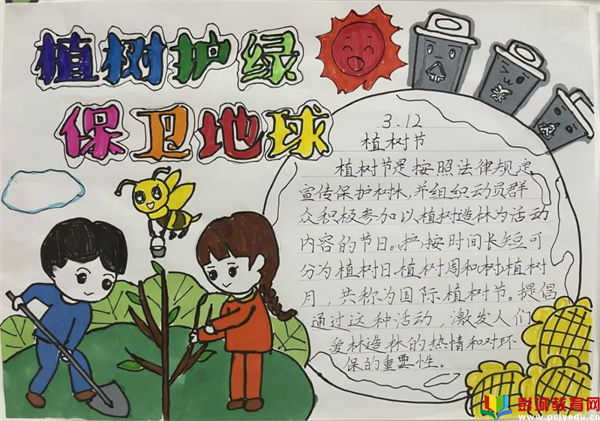 植树护绿
保卫地球
3.12
植树节
植树节是按照法律规定
宣传保护树木,并组织动员群
众积极参加以植树造林为活动
内容的节日。按时间长短可
分为植树日、植树周和植树
月,共称为国际植树节。提倡
通过这种活动,激发人们
爱林造林的热情和对环
保的重要性。
彭州教育网
www.pcjyedu.cn